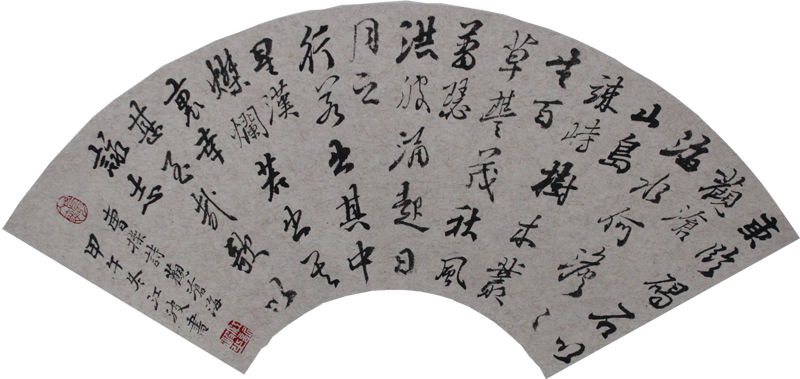 東臨碣石以
觀滄
海水何澹々
山島
竦峙樹木叢
生百
草豐茂秋風
蕭瑟
洪波涌起日
月之
行若出其中
星漢
燦爛若出其
裏幸
甚至哉歌以
詠志
曹操詩觀滄海
甲午冬江波書